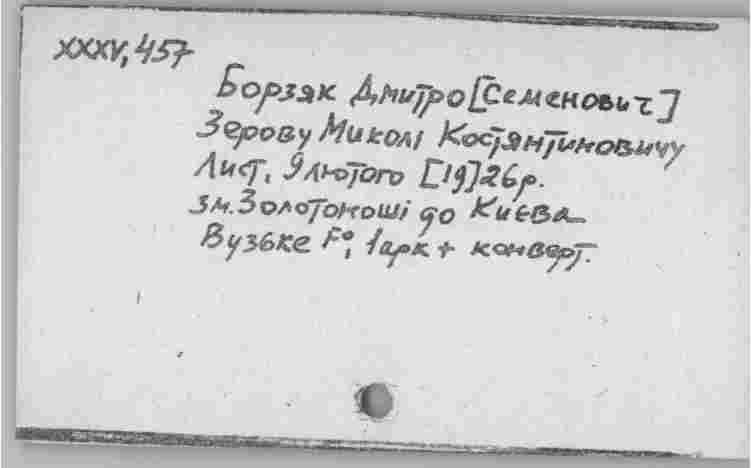 XXXV, 457
Борзяк Дмитро [Семенович]
Зерову Миколі Костянтиновичу
Лист, 9 лютого [19]26 р.
зм. Золотоноші до Києва
Вузьке F°, 1 арк + конверт.